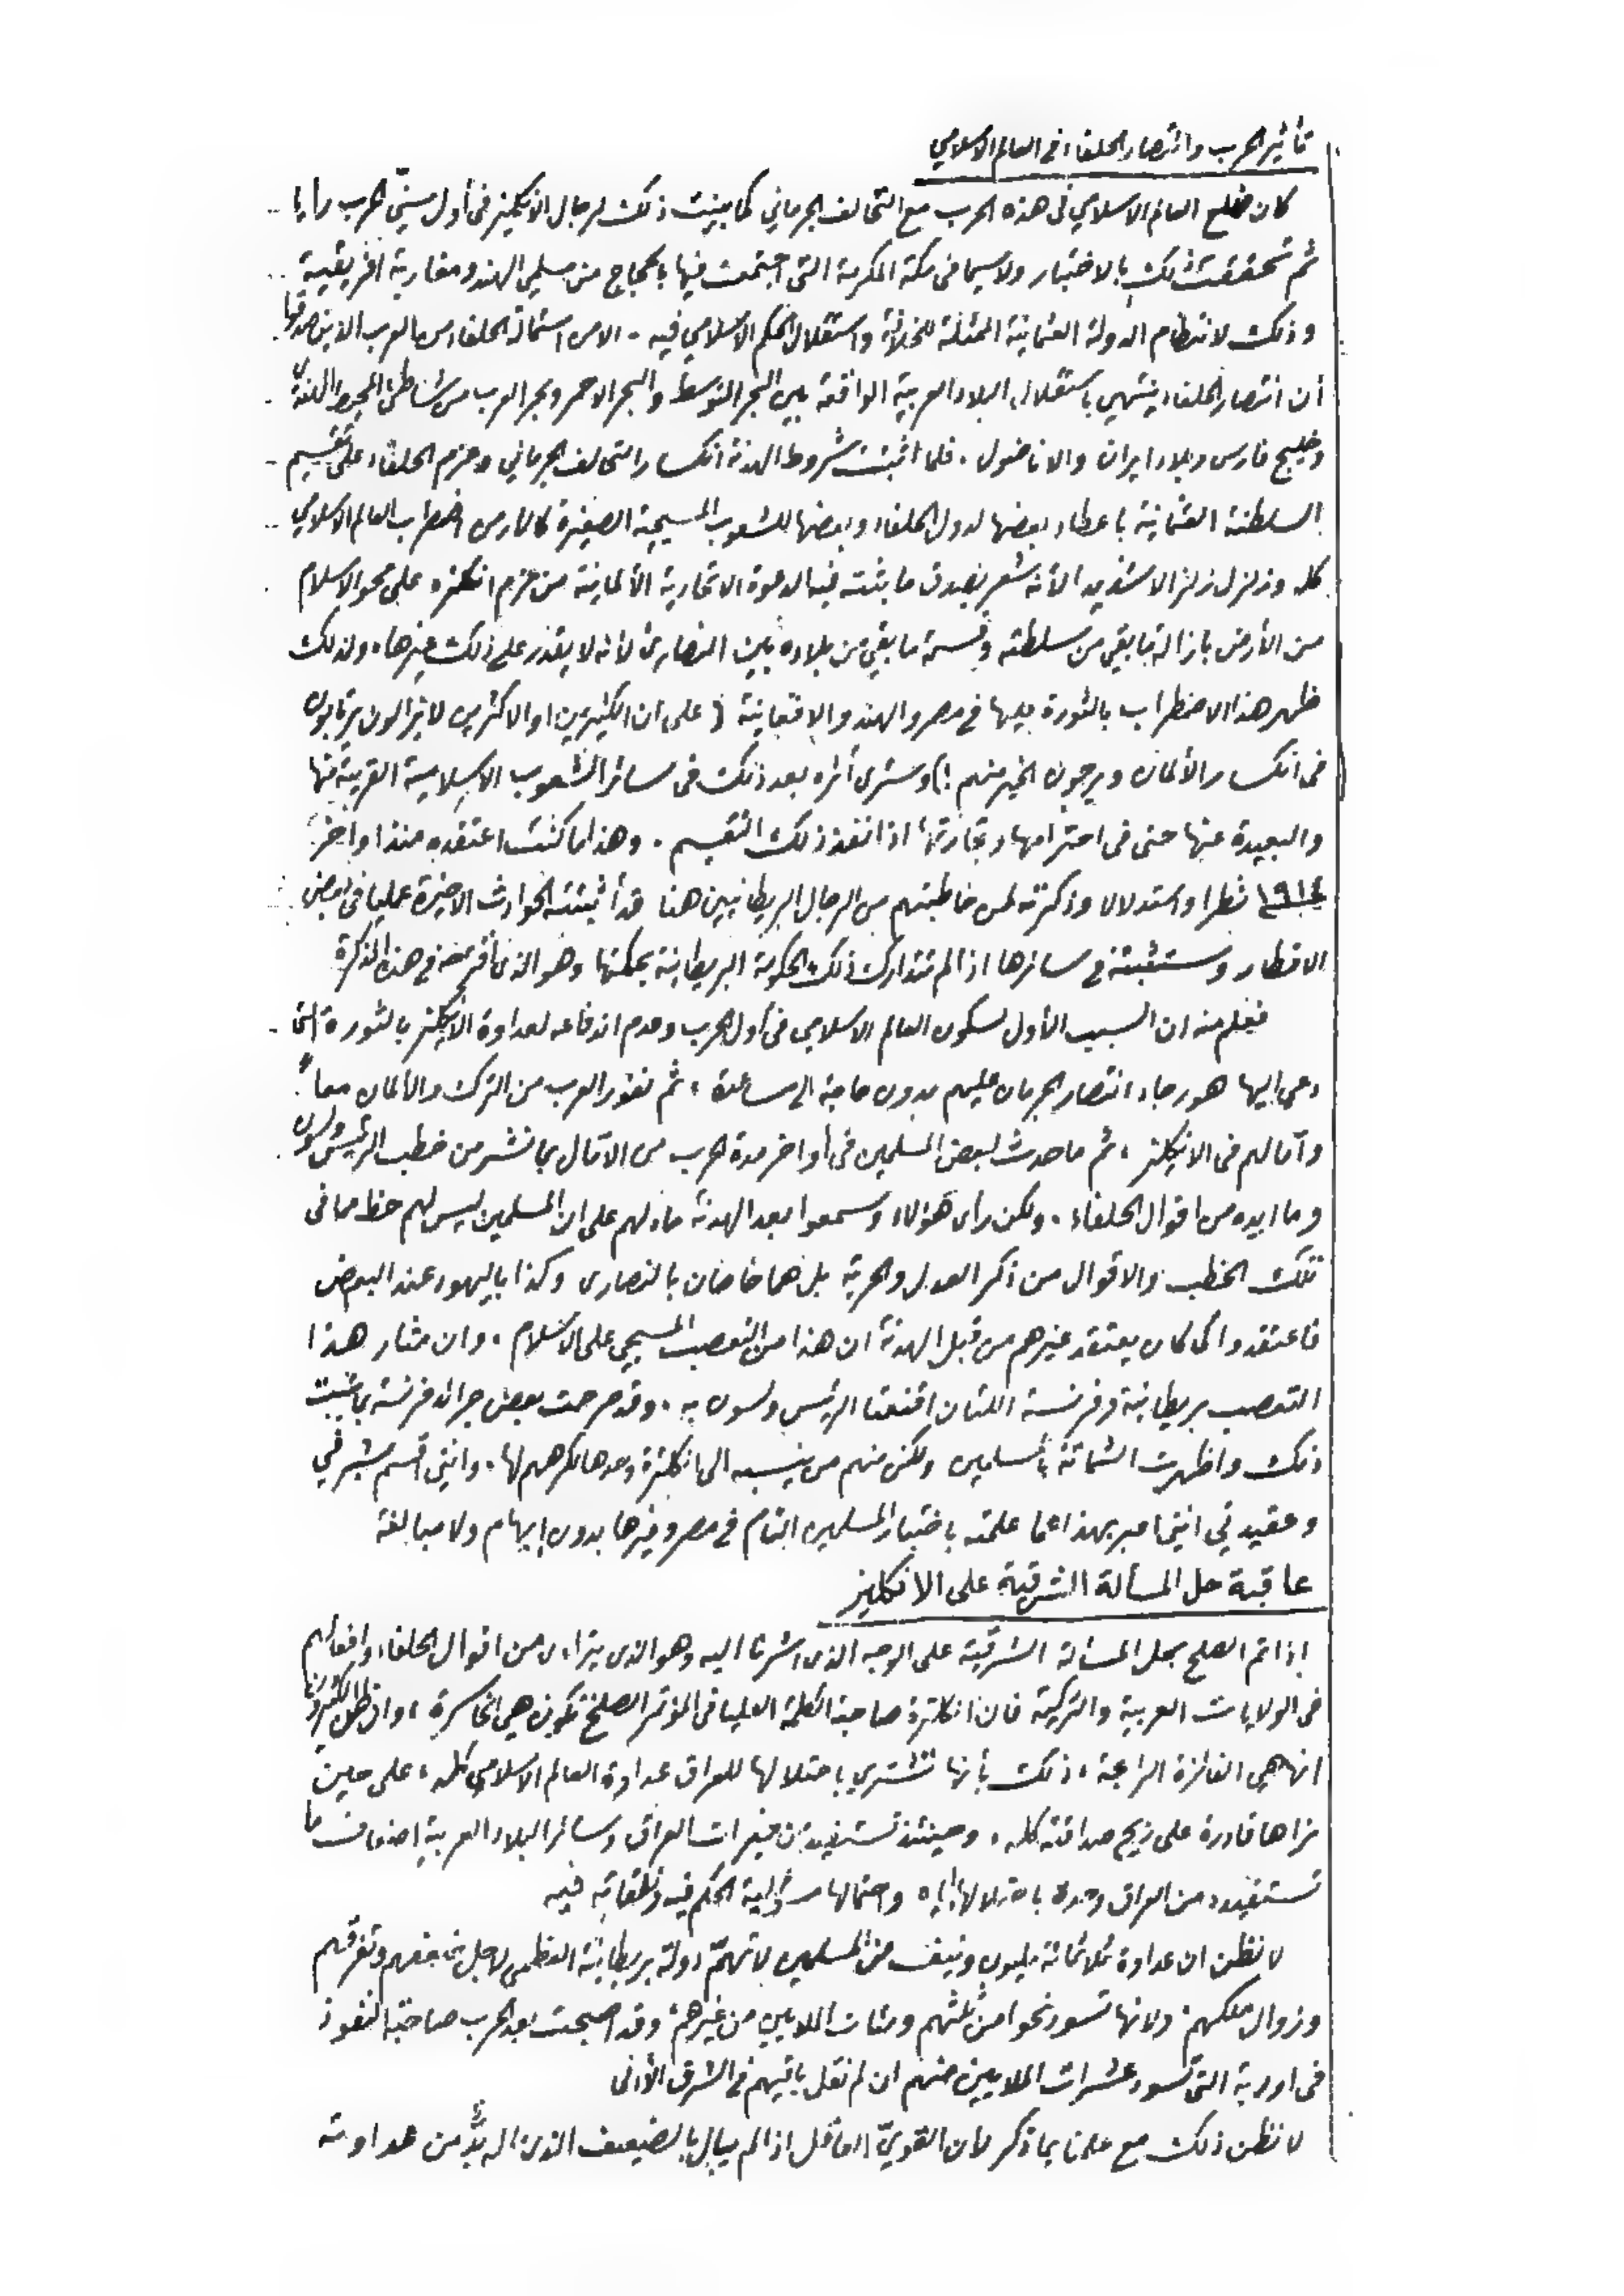 تأثير الحرب وانتصار الحلفاء في العالم الاسلامي
كان ضلع العالم الاسلامي في هذه الحرب مع التحالف الجرماني كما بينت ذلك لرجال الانكليز في أول سنيّ الحرب رأيا
ثم تحققت ذلك بالاختبار ولا سيما في مكة المكرمة التي اجتمعت فيها بالحجاج من مسلمي الهند ومغاربة افريقية
وذلك لانتظام الدولة العثمانية الممثلة للخلافة واستقلال الحكم الاسلامي فيه - الا من استماله الحلفاء من العرب الذين صدقوا
أن انتصار الحلفاء ينتهي باستقلال البلاد العربية الواقعة بين البحر المتوسط والبحر الاحمر وبحر العرب من شاطئ المحيط الهندي
وخليج فارس وبلاد ايران والاناضول . فلما اثبتت شروط الهدنة انكسار التحالف الجرماني وعزم الحلفاء على تقسيم
السلطنة العثمانية باعطاء بعضها لدول الحلفاء وبعضها للشعوب المسيحية الصغيرة كالارمن اضطرب العالم الاسلامي
كله وزلزل زلزالا شديدا لأنه شعر بصدق ما بثته فيه الدعوة الاتحادية الألمانية من عزم انكلترة على محو الاسلام
من الأرض بازالة ما بقي من سلطته وقسمة ما بقي من بلاده بين النصارى لأنه لا يقدر على ذلك غيرها . ولذلك
ظهر هذا الاضطراب بالثورة عليها في مصر والهند والافغانية ( على ان الكثيرين او الاكثرين لا يزالون يرتابون
في انكسار الألمان ويرجون الخير منهم !) وسترى أثره بعد ذلك في سائر الشعوب الاسلامية القريبة منها
والبعيدة عنها حتى في احترامها وتجارتها اذا نفذ ذلك التقسيم . وهذا ما كنت اعتقده منذ اواخر
١٩١٤ نظرا واستدلالا وذكرته لمن خاطبتهم من الرجال البريطانيين هنا قد أثبتته الحوادث الاخيرة عمليا في بعض
الاقطار وستثبته في سائرها اذا لم تتدارك ذلك الحكومة البريطانية بحكمتها وهو الذي أقترحه في هذه المذكرة
فيعلم منه ان السبب الأول لسكون العالم الاسلامي في أول الحرب وعدم اندفاعه لعداوة الانكليز بالثورة التي
دعي اليها هو رجاء انتصار الجرمان عليهم بدون حاجة الى مساعدة ، ثم نفور العرب من الترك والألمان معاً
وآمالهم في الانكليز ، ثم ما حدث لبعض المسلمين في أواخر مدة الحرب من الآمال بما نشر من خطب الرئيس ولسون
وما ايده من اقوال الحلفاء . ولكن رأى هؤلاء وسمعوا بعد الهدنة ما دلهم على ان المسلمين ليس لهم حظ مما في
تلك الخطب والاقوال من ذكر العدل والحرية بل هما خاصان بالنصارى وكذا باليهود عند البعض
فاعتقدوا كما كان يعتقد غيرهم من قبل الهدنة ان هذا من التعصب المسيحي على الاسلام . وان مثار هذا
التعصب بريطانية وفرنسة اللتان اقنعتا الرئيس ولسون به . وقد صرحت بعض جرائد فرنسة بما يثبت
ذلك واظهرت الشماتة بالمسلمين ولكن منهم من ينسبه الى انكلترة وحدها لكرههم لها . وانني اقسم بشرفي
وعقيدتي انني اعبر بهذا عما علمته باختبار المسلمين التام في مصر وغيرها بدون إيهام ولا مبالغة
عاقبة حل المسألة الشرقية على الانكليز
إذا تم الصلح بحل المسئلة الشرقية على الوجه الذي اشرنا اليه وهو الذي يتراءى من اقوال الحلفاء وافعالهم
في الولايات العربية والتركية فان انكلترة صاحبة الكلمة العليا في المؤتمر الصلحي تكون هي الخاسرة ، وان ظن الكثيرون
انها هي الفائزة الرابحة ، ذلك بأنها تشتري باحتلالها للعراق عداوة العالم الاسلامي كله ، على حين
نراها قادرة على ربح صداقته كله ، وحينئذ تستفيد من خيرات العراق وسائر البلاد العربية اضعاف ما
تستفيده من العراق وحده باحتلالها اياه واحتمالها مسؤلية الحكم فيه ونفقاته فيه
لا نظن ان عداوة ثلاثمائة مليون ونيف من المسلمين لا تهمّ دولة بريطانية العظمى لاجل ضعفهم وتفرقهم
وزوال ملكهم ولانها تسود نحوا من ثلثهم ومئات الملايين من غيرهم وقد اصبحت بعد الحرب صاحبة النفوذ
في اوربة التي تسود عشرات الملايين منهم ان لم نقل باقيهم في الشرق الأدنى
لا نظن ذلك مع علمنا بما ذكر لأن القويّ العاقل اذا لم يبال بالضعيف الذي لا بدّ من عداوته